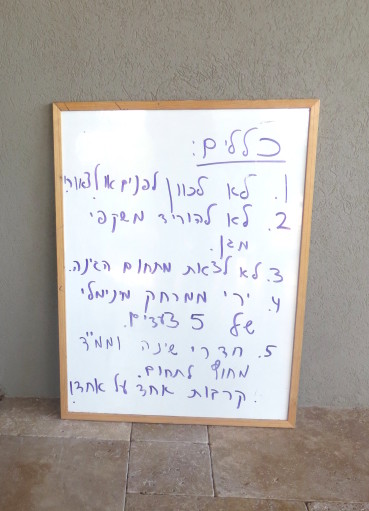 כללים:
1. לא לכוון לפנים או לצוואר
2. לא להוריד משקפי
מגן.
3. לא לצאת מתחום הגינה.
4. ירי ממרחק מינימלי
של 5 צעדים.
5. חדרי שינה וממ"ד
מחוץ לתחום.
קרבות אחד על אחד!